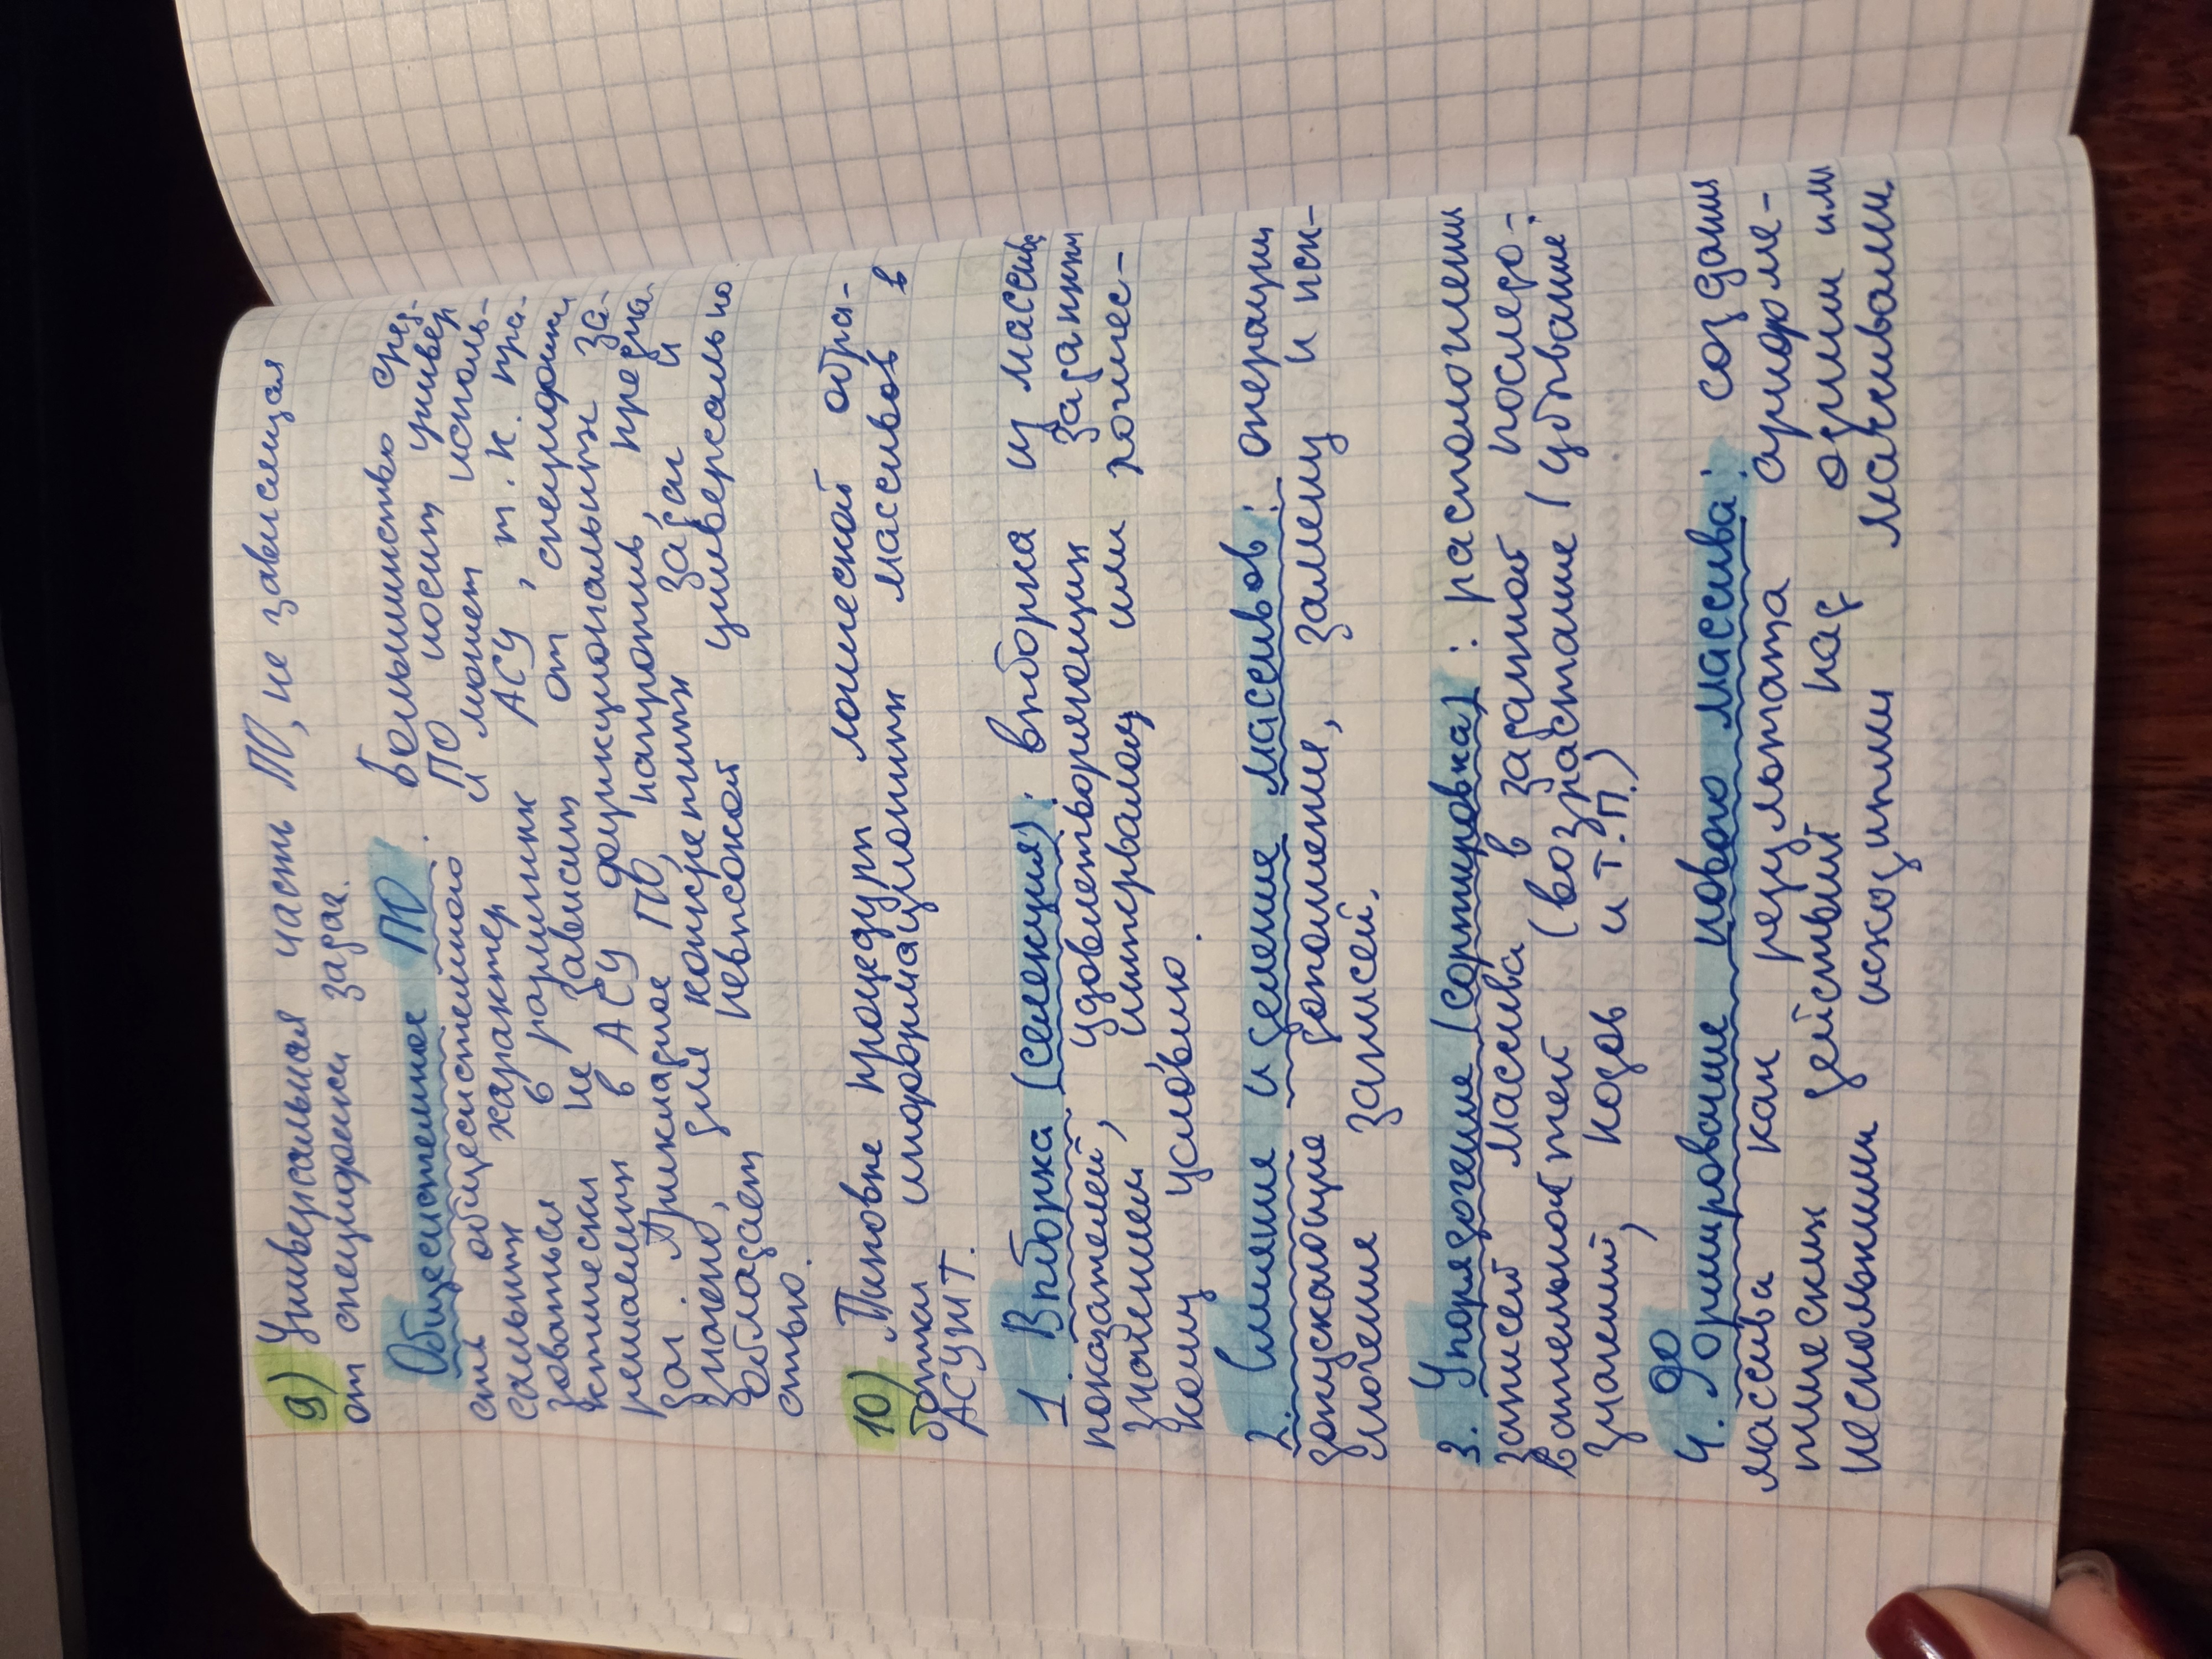 9) Универсальная часть ПО, не зависящая
от специфики задач.
Общесистемное ПО: большинство сред-
ств общесистемного ПО носит универ
сальный характер и может исполь-
зоваться в различных АСУ, т.к. пра-
ктически не зависит от специфики
решаемых в АСУ функциональных за-
дач. Прикладное ПО, напротив, предна-
значено для конкретных задач и
обладает невысокой универсально
стью.
10) Типовые процедуры логической обра-
ботки информационных массивов в
АСУИТ.
1. Выборка (селекция): выборка из массива
показателей, удовлетворяющих заданным
значениям, интервалам или логичес-
кому условию.
2. Слияние и деление массивов: операции
допускающие дополнение, замену и иск-
лючение записей.
3. Упорядочение (сортировка): расположении
записей массива в заданной последо-
вательностей (возрастание / убывание
значений, кодов и т.п.)
4. Формирование нового массива: создания
массива как результата арифме-
тических действий над одним или
несколькими исходными массивами.